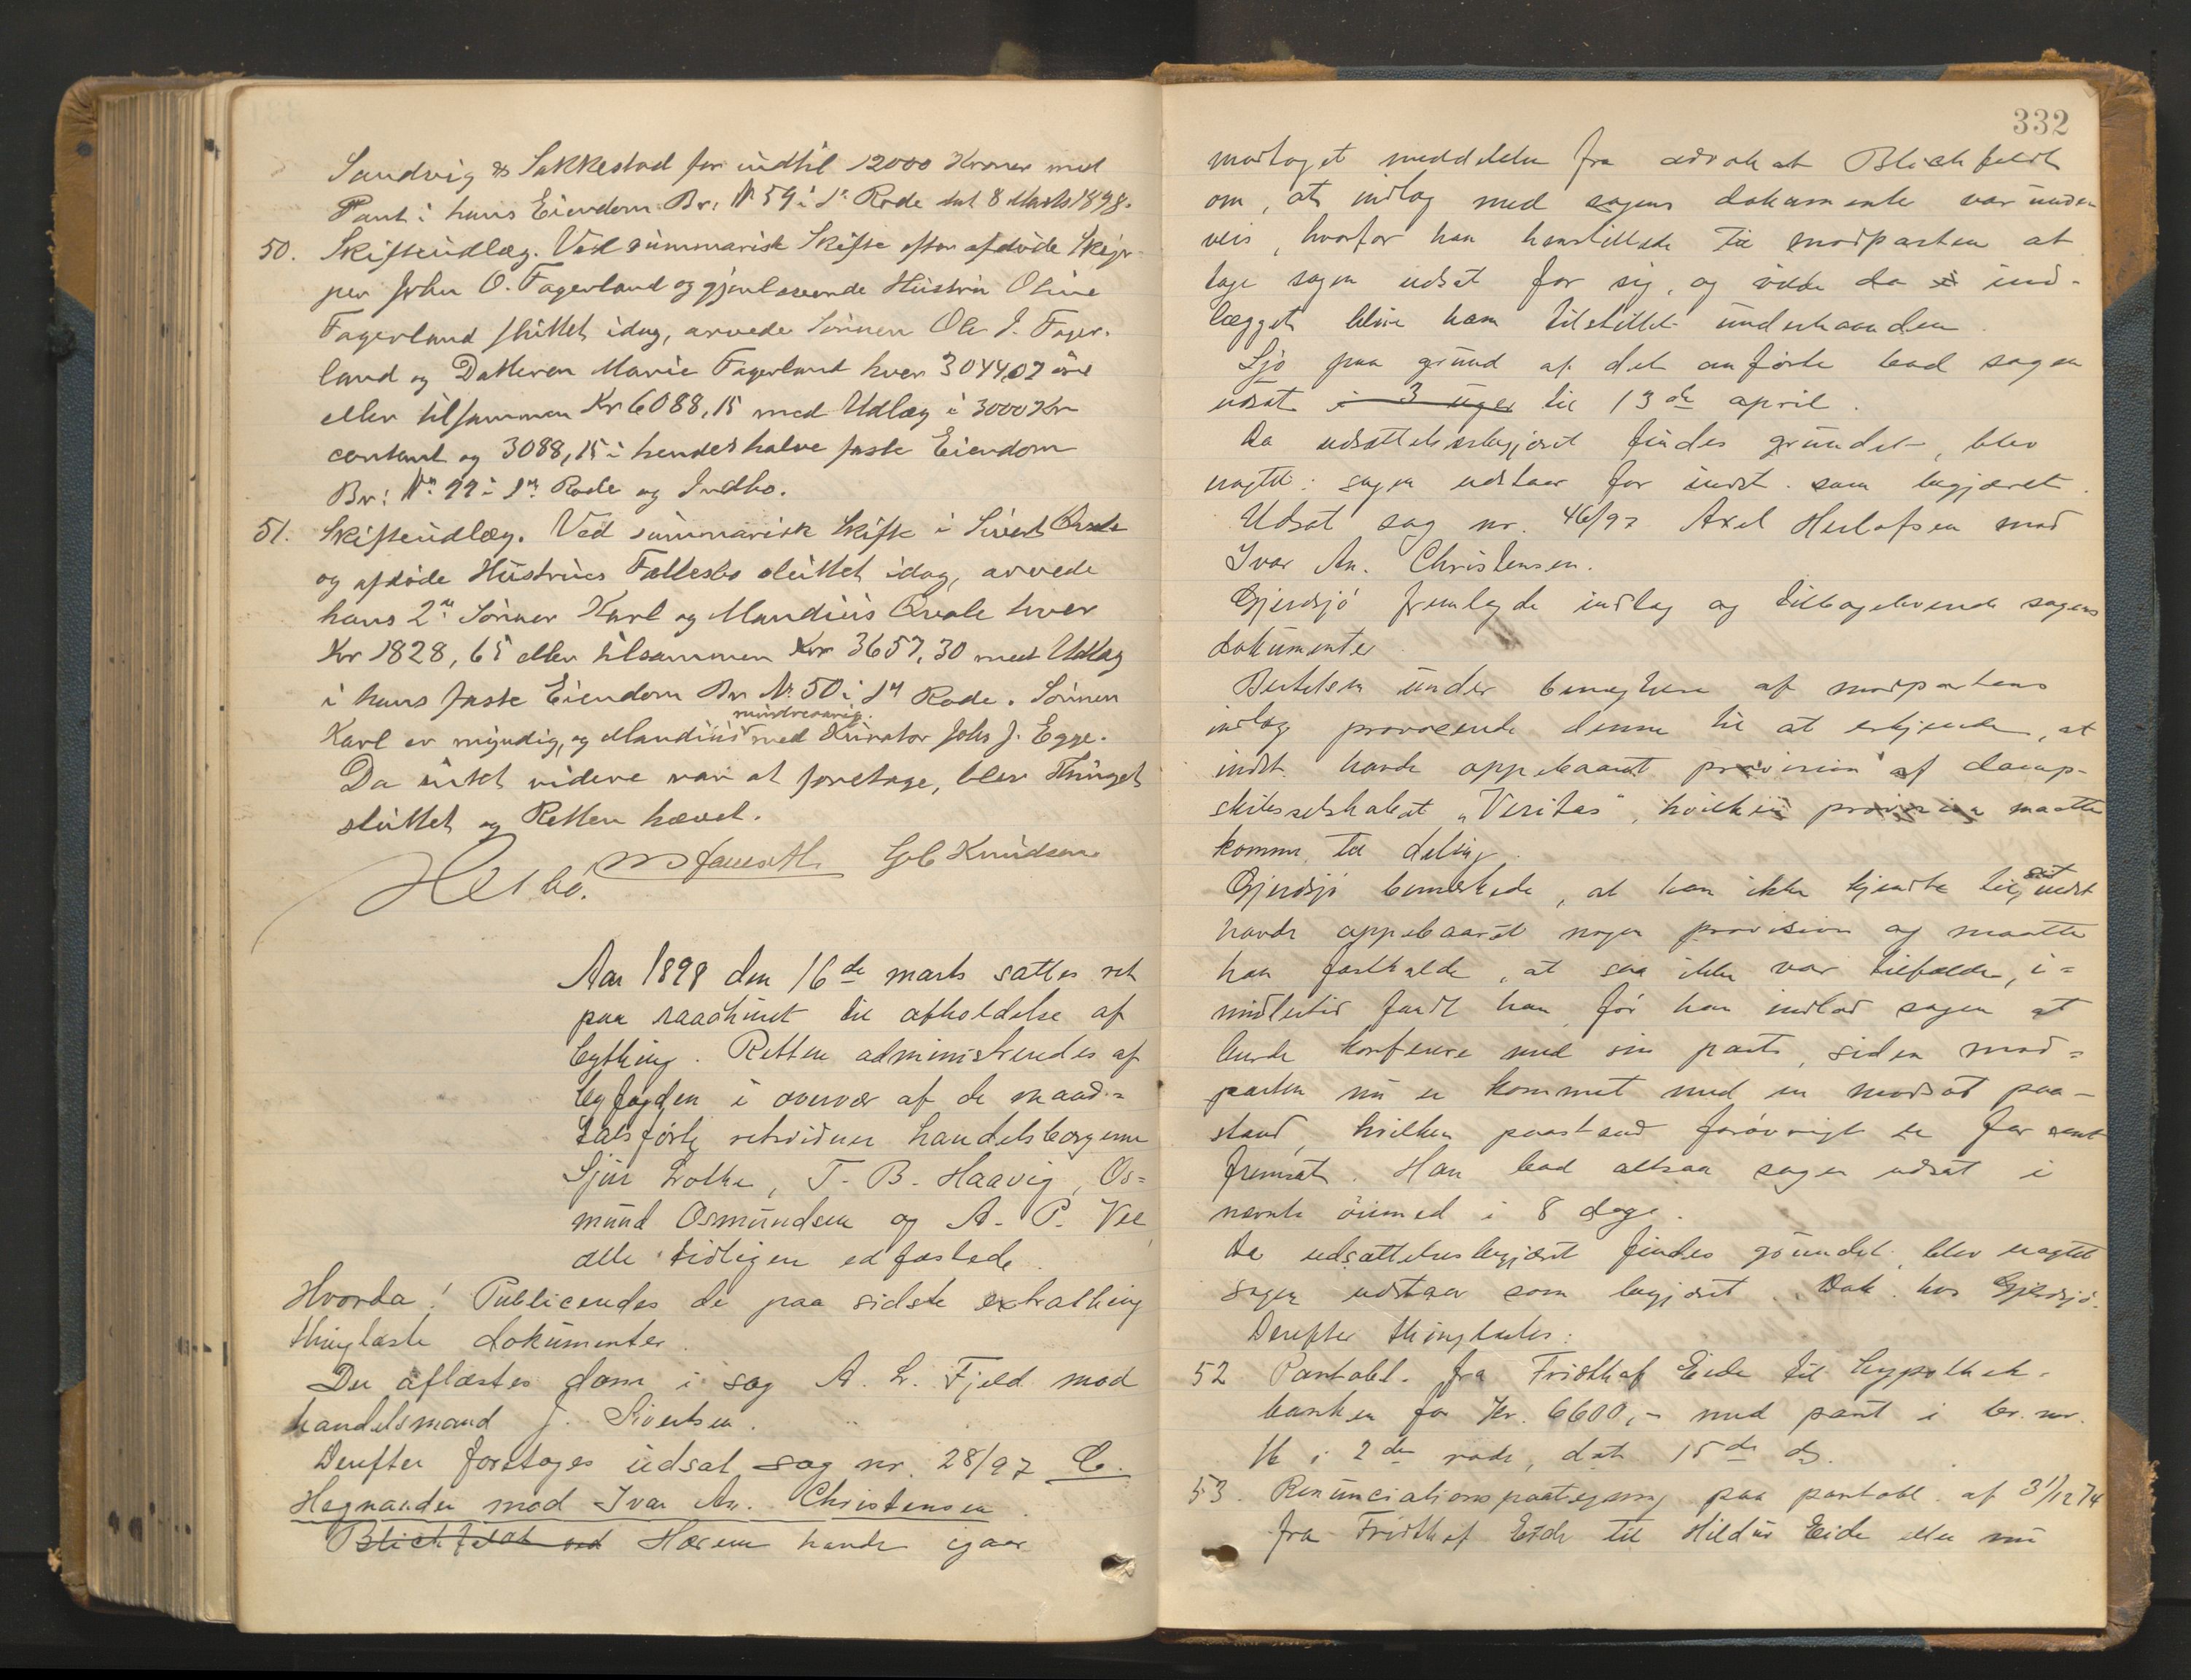 Sandvig & Sakkestad for indtil 12000 Kroner med
Pant i hans Eiendom Br: N 59 i 1ste Rode dat 8 Marts 1898.
50. Skifteudlæg. Ved summarisk Skifte efter afdöde Skip-
per John O. Fagerland og gjenlevende Hustru Oline
Fagerland sluttet idag, arvede Sönnen Ole J. Fager-
land og Datteren Marie Fagerland hver 3044,07 öre
eller tilsammen Kr 6088,15 med Udlæg i 3000 Kr
contant og 3088,15 i hendes halve faste Eiendom
Br: No 99 i 1ste Rode og Indbo.
51. Skifteudlæg. Ved summarisk Skifte i Sivert Qvale
og afdöde Hustrues Fællesbo sluttet idag, arvede
hans 2de Sönner Karl og Mandius Qvale hver
Kr 1828,65 eller tilsammen Kr 3657,30 med Udlæg
i hans faste Eiendom Br N. 50 i 1ste Rode. Sönnen
Karl er myndig, og Mandius mindreaarig med Kurator Johs J. Egge.
Da intet videre var at foretage, blev Thinget
sluttet og Retten hævet.
Knudsen
Aar 1898 den 16de marts sattes ret
paa raadhuset til afholdelse af
bything. Retten administreredes af
byfogden i overvær af de maad-
talsförte retsvidner handelsborgerne
Sjur Lothe, T. B. Haavig, Os-
mund Osmundsen og A. P. Vee,
alle tidligere edfæstede.
Hvorda! Publiceredes de paa sidste extrathing
thinglæste dokumenter.
Der aflæstes dom i sag A. L. Fjeld mod
handelsmand J. Sivertsen.
Derefter foretoges udsat sag nr. 28/97 C.
Hagnander mod Ivar An. Christensen.
Blichfeldt ved Hærem havde igaar
332
modtaget meddelelse fra advokat Blichfeldt
om, at indlæg med sagens dokumenter var under-
veis, hvorfor han henstillede til modparten at
tage sagen udsat for sig, og vilde da ind-
lægget blive ham tilstillet underhaanden.
Sjo paa grund af det anförte bad sagen
udsat i 3 uger til 13de april.
Da udsættelsesbegjæret findes grundet, blev
eragtet: sagen udstaar for indst. som begjæret.
Udsat sag nr. 46/97 Axel Herlofsen mod
Ivar An. Christensen.
Gjerdsjö fremlagde indlæg og tilbageleverede sagens
dokumenter.
Bertelsen under benægtelse af modpartens
indlæg provocerede denne til at erkjende, at
indst. havde oppebaaret provision af damp-
skibsselskabet "Veritas", hvilken provision maatte
komme til deling.
Gjerdsjö bemærkede, at han ikke kjendte til, at indst
havde oppebaaret nogen provision og maatte
han fastholde, at saa ikke var tilfælde, i-
midlertid fandt han, för han indlod sagen at
burde konferere med sin part, siden mod-
parten nu er kommet med en modsat paa-
stand, hvilken paastand forövrigt er for sent
fremsat. Han bad altsaa sagen udsat i
nævnte öiemed i 8 dage.
Da udsættelsesbegjæret findes grundet, blev eragtet
sagen udstaar som begjæret. Dok. hos Gjerdsjö.
Derefter thinglæstes:
52 Pantobl. fra Fridthof Eide til hypothek-
banken for Kr. 6600,- med pant i br. nr.
16 i 2den rode, dat 15de ds.
53. Renunciationspaategning paa pantobl. af 31/12 74
fra Fridthof Eide til Hildur Eide eller nu